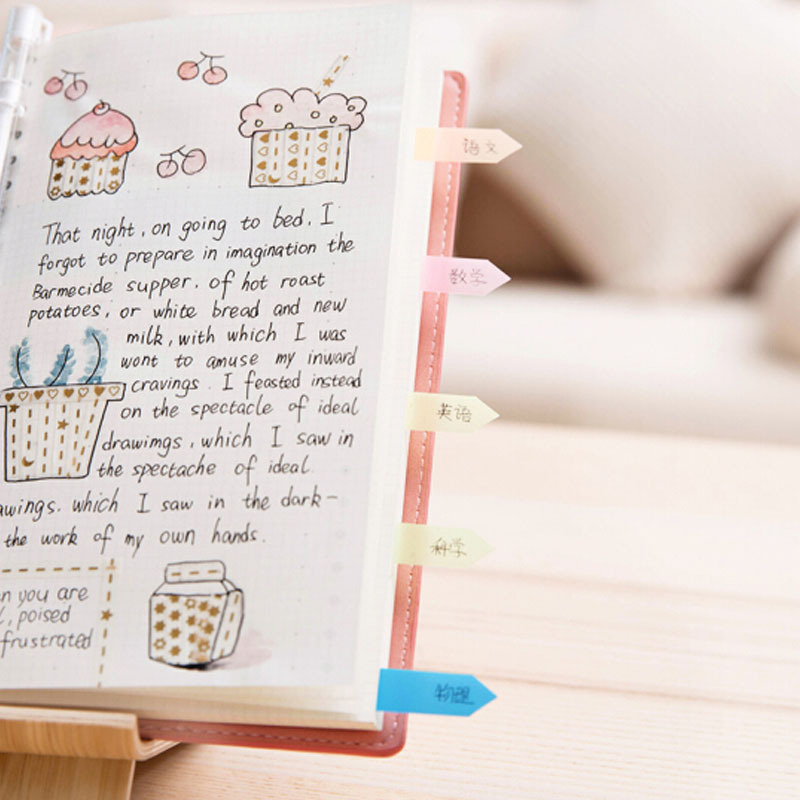 That night, on going to bed, I
forgot to prepare in imagination the
Barmecide supper, of hot roast
potatoes, or white bread and new
milk, with which I was
wont to amuse my inward
cravings. I feasted instead
on the spectacle of ideal
drawimgs, which I saw in
the spectache of ideal.
awings. which I saw in the dark-
the work of my own hands.
n you are
l, poised
frustrated
语文
数学
英语
科学
物理